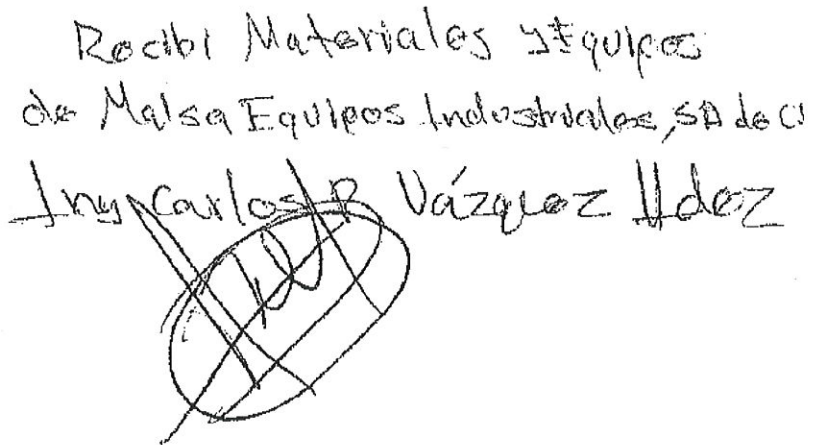 Recibi Materiales y Equipos
de Malsa Equipos Industriales, SA de CV
Ing Carlos R Vázquez Hdez